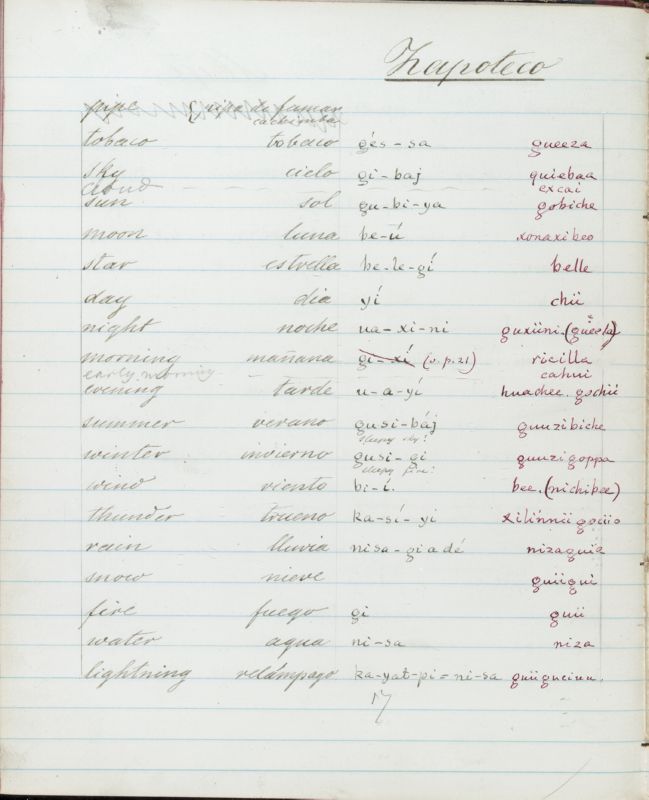 Zapoteco
pipe pipa de fumar
cachimba
tobaco tobaco gés-sa gueeza
sky cielo gi-baj quiebaa
cloud excai
sun sol gu-bi-ya gobiche
moon luna be-ú xonaxibeo
star estrella be-le-gí belle
day dia yí chii
night noche ua-xi-ni guxiini. (gueela)
morning mañana gi-xí (v. p. 21) ricilla
early morning cahui
evening tarde u-a-yí huachee. gochii
summer verano gusi-báj guuzibiche
sleepy sky?
winter invierno gusi-gi guuzigoppa
sleepy fire?
wind viento bi-í. bee. (nichibee)
thunder trueno ka-sí-yi xilinnii gociio
rain lluvia nisa-giadé nizaguia
snow nieve guiigui
fire fuego gi guii
water agua ni-sa niza
lightning relámpago ka-yat-pi=ni-sa
17